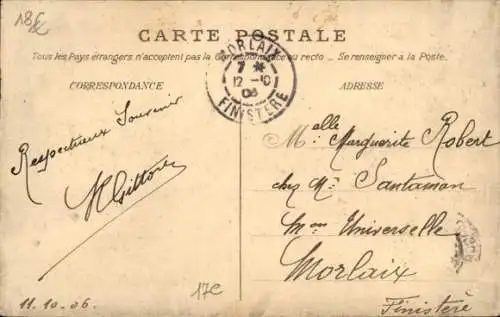 18€
CARTE POSTALE
Tous les Pays étrangers n'acceptent pas la Correspondance au recto _ Se renseigner à la Poste.
CORRESPONDANCE
ADRESSE
MORLAIX
7 *
12 -10
06
FINISTÈRE
Respectueux Souvenir
11.10.06.
17€
Malle Marguerite Robert
chez Mr Santaman
Mon Universelle
Morlaix
Finistère